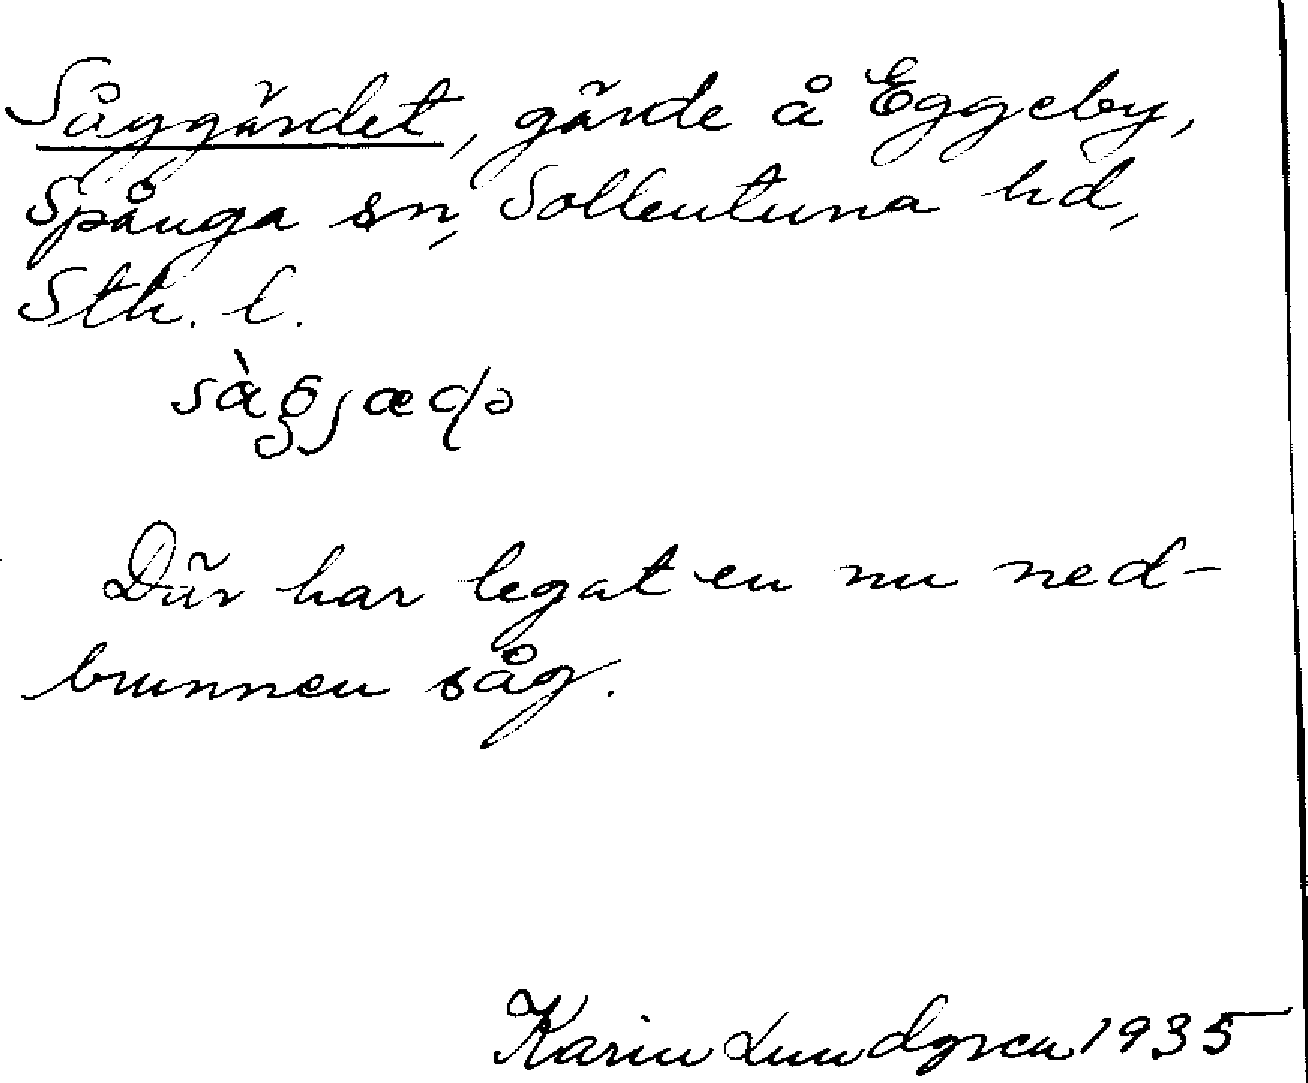 Såggärdet, gärde å Eggeby,
Spånga sn, Sollentuna hd,
Sth. l.
sàgjæḍə
Där har legat en nu ned-
brunnen såg.
Karin Lundgren 1935